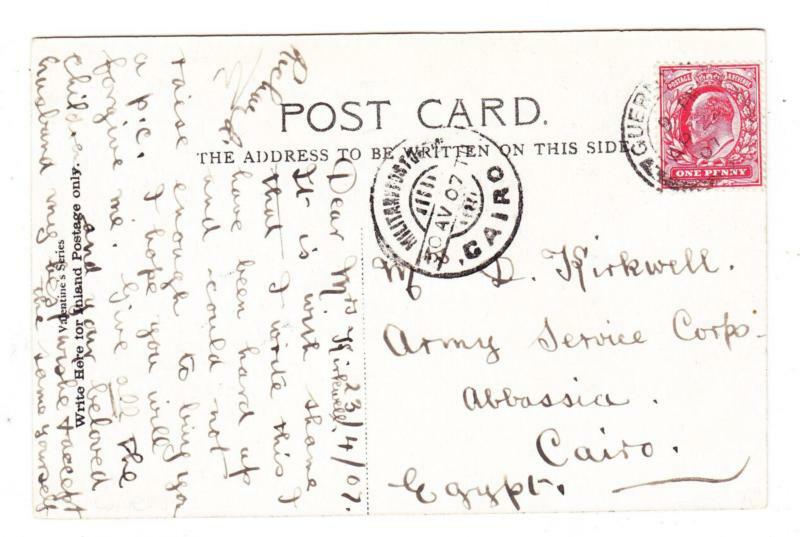 POST CARD.
THE ADDRESS TO BE WRITTEN ON THIS SIDE
POSTAGE REVENUE
ONE PENNY
GUERN
07
MILITARY POST
30 AV 07
CAIRO
Mr D. Kirkwell.
Army Service Corps
Abbassia.
Cairo.
Egypt.
Valentine's Series
Write Here for Inland Postage only.
23/4/07.
Dear Mrs Kirkwell,
It is with shame
that I write this I
have been hard up
and could not
raise enough to buy you
a p.c. I hope you will
forgive me. Give all the
children and your beloved
husband my best wishes & accept
the same yourself